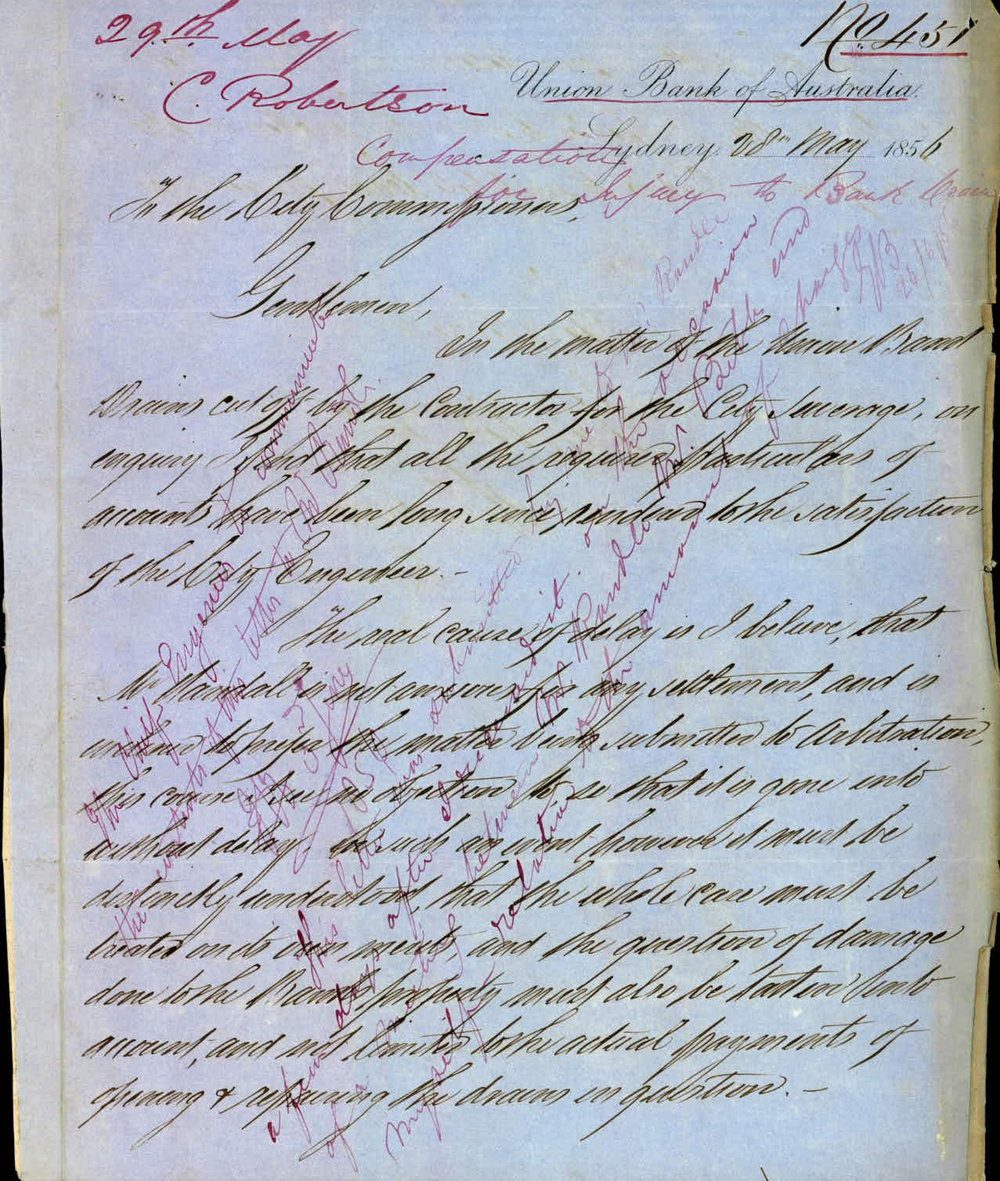 29th May
No 451
C. Robertson
Union Bank of Australia.
Sydney 28th May 1856
Compensation
for Injury to Bank Drain
To the City Commissioners,
Gentlemen,
In the matter of the Union Bank
Drains cut off by the Contractor for the City Sewerage, on
enquiry I find that all the required particulars of
accounts have been long since rendered to the satisfaction
of the City Engineer. -
The real cause of delay is I believe, that
Mr Randall is not anxious for any settlement, and is
inclined to prefer the matter being submitted to Arbitration,
this course I see no objection to so that it is gone into
without delay. In such an event however it must be
distinctly understood, that the whole case must be
treated on its own merits and the question of damage
done to the Bank property must also be taken into
account, and not limited to the actual payments of
opening & repairing the drains in question. -
The City Engineer to communicate
the contents of this letter to Mr Randle.
This letter was submitted by me to Mr Randle
a few days after I received it. on the occasion
of a meeting between Mr Randle Mr Bell and
myself relative to the amount of